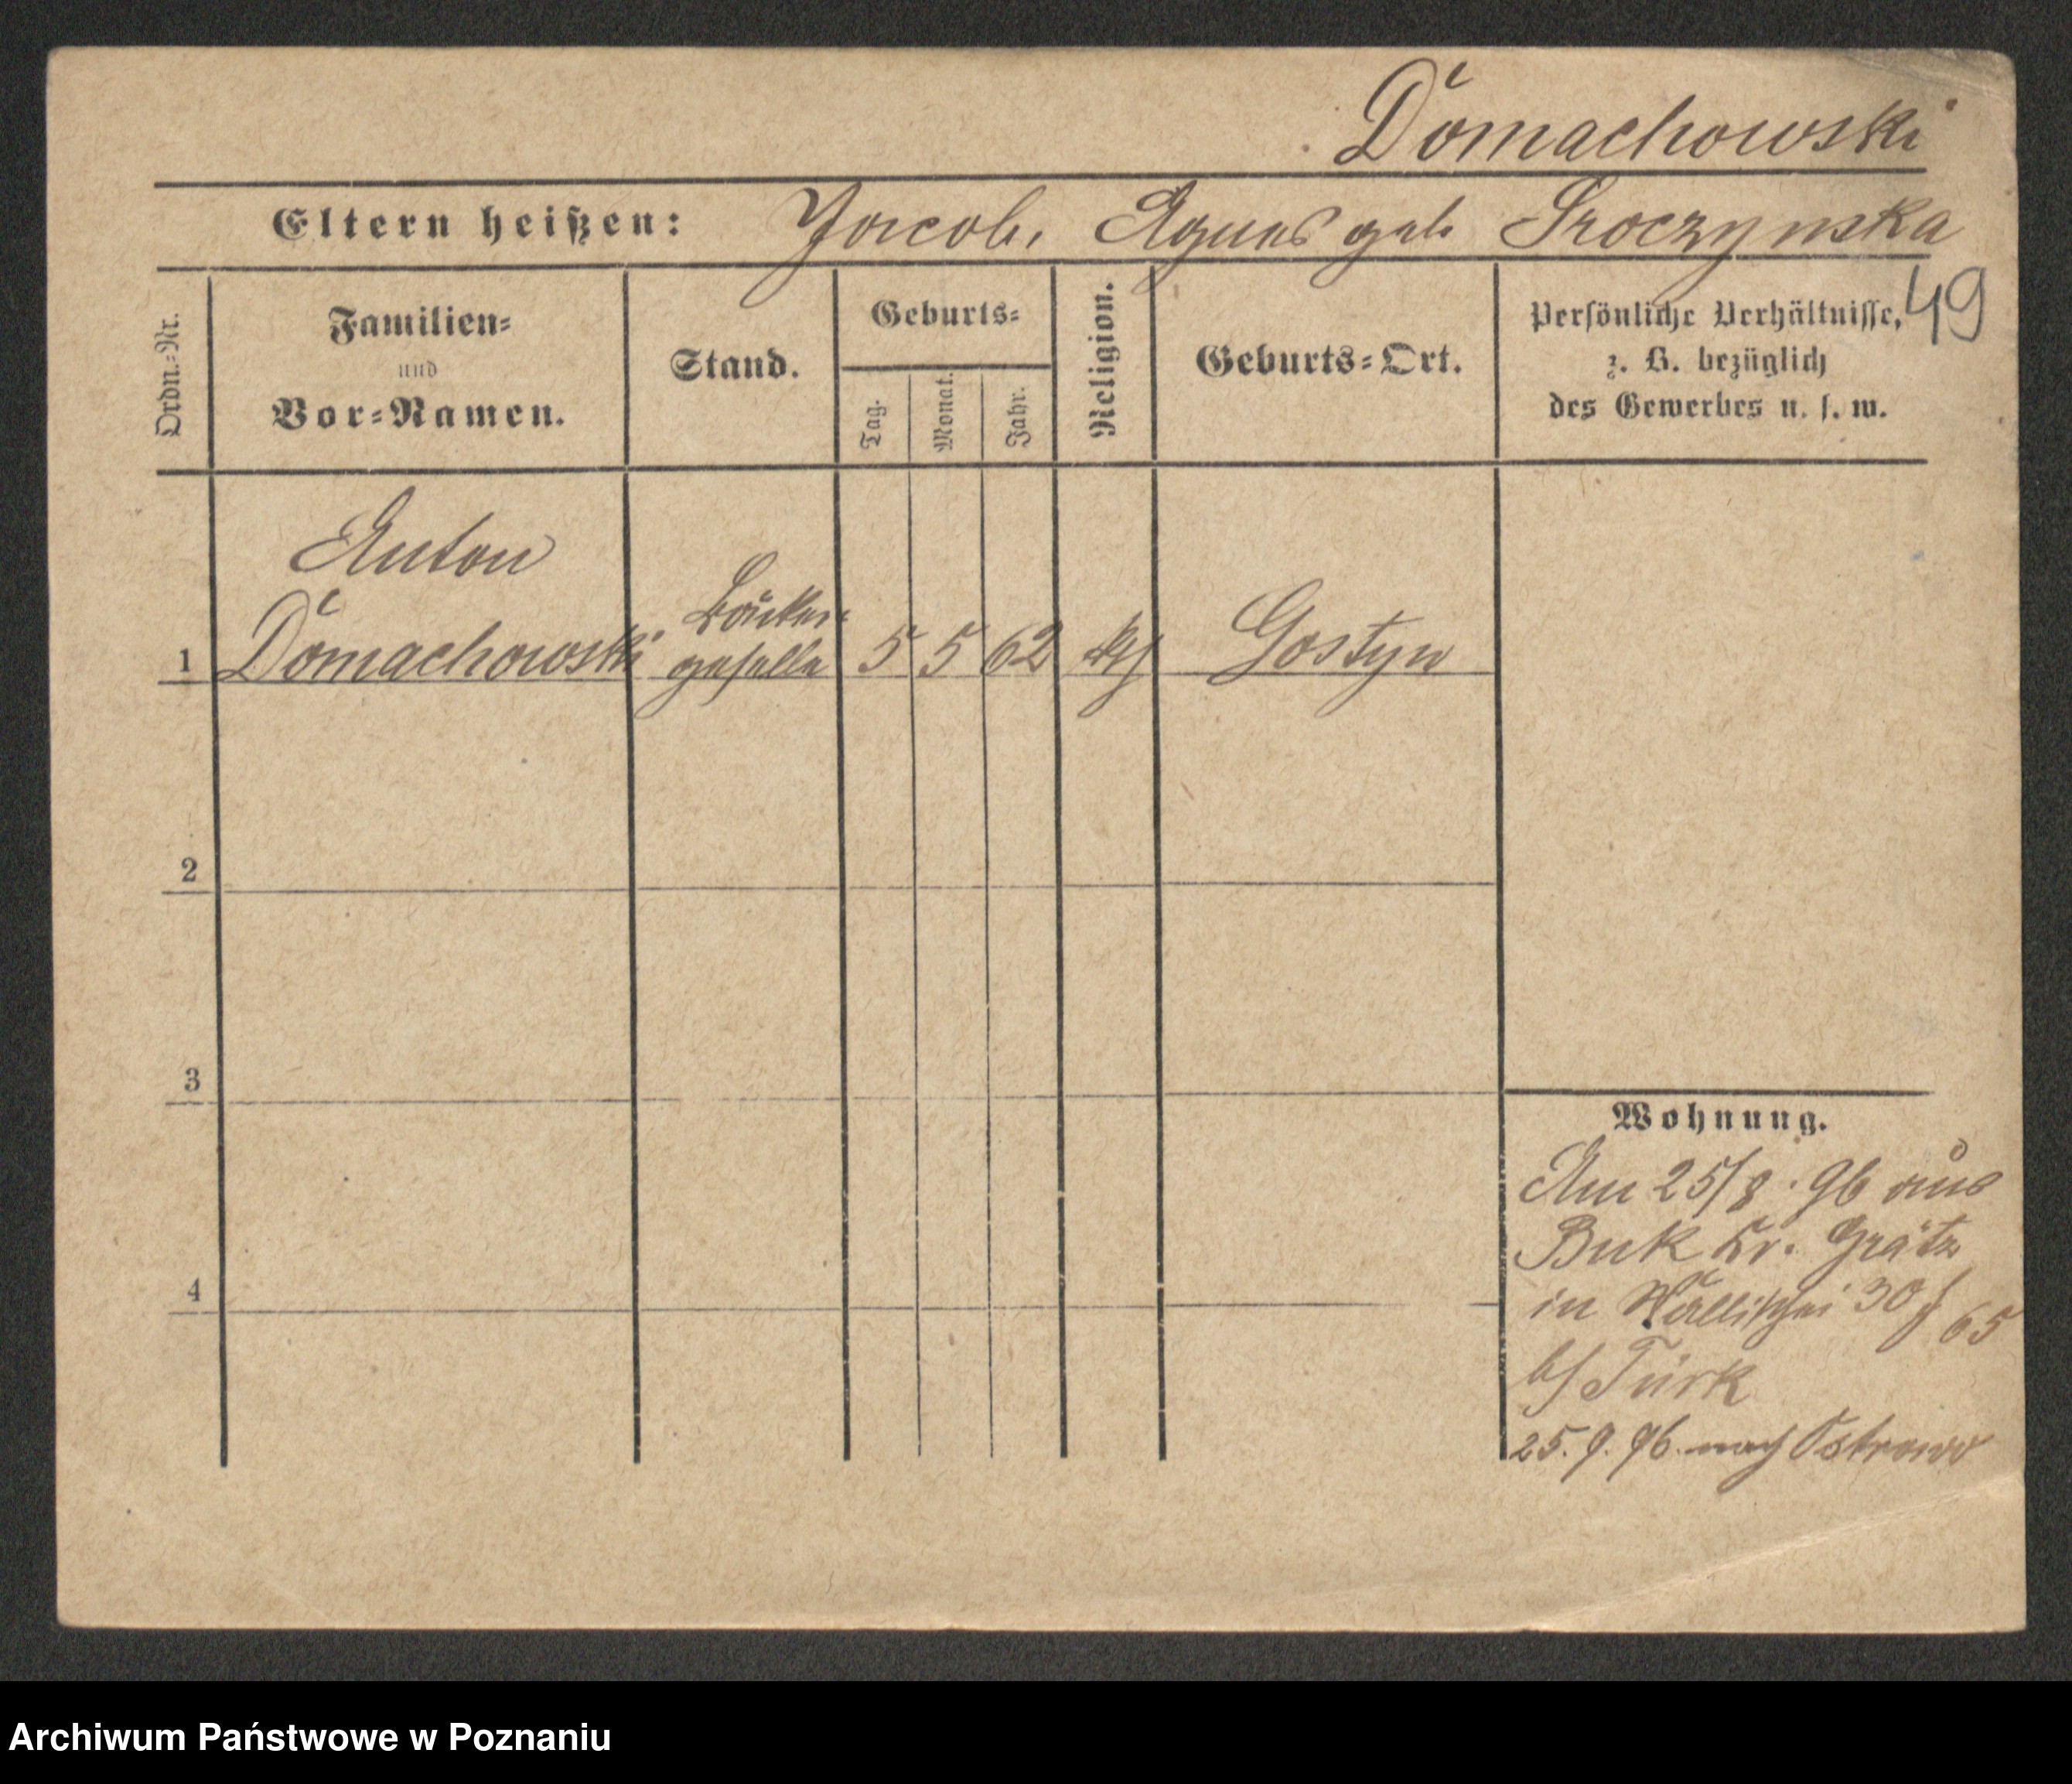 Domachowski
Eltern heißen: Jacob, Agnes geb. Sroczynska
49
Ordn.-Nr.
Familien-
und
Vor-Namen.
Stand.
Geburts-
Tag.
Monat.
Jahr.
Religion.
Geburts-Ort.
Persönliche Verhältnisse,
z. B. bezüglich
des Gewerbes u. s. w.
Anton
1 Domachowski
Bäcker-
geselle
5 5 62 kth Gostyn
2
3
4
Wohnung.
Am 25/8. 96 aus
Buk Kr. Grätz
in Wallischei 30/65
b/ Türk
25. 9. 96. nach Ostrowo
Archiwum Państwowe w Poznaniu